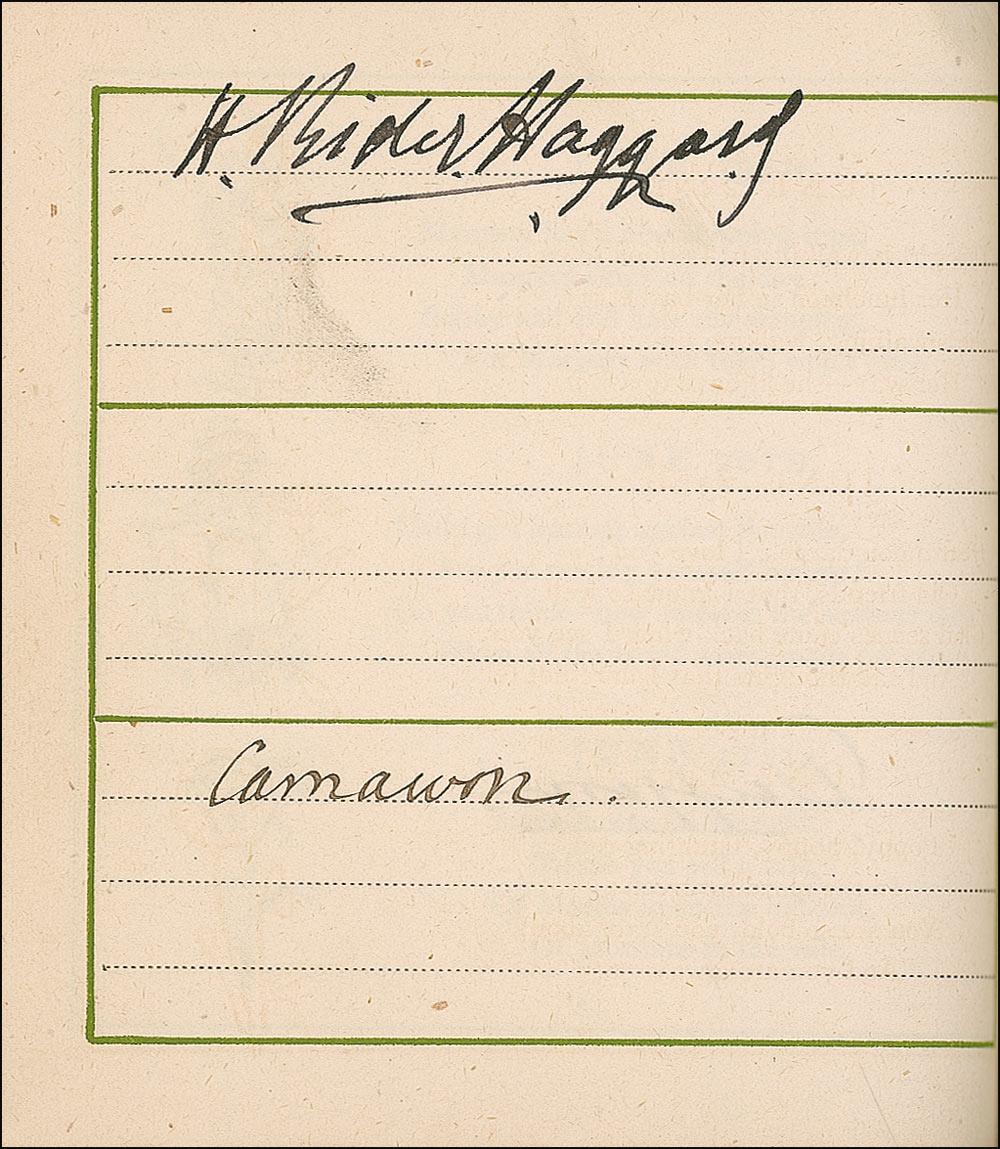 H. Rider Haggard
Carnarvon.